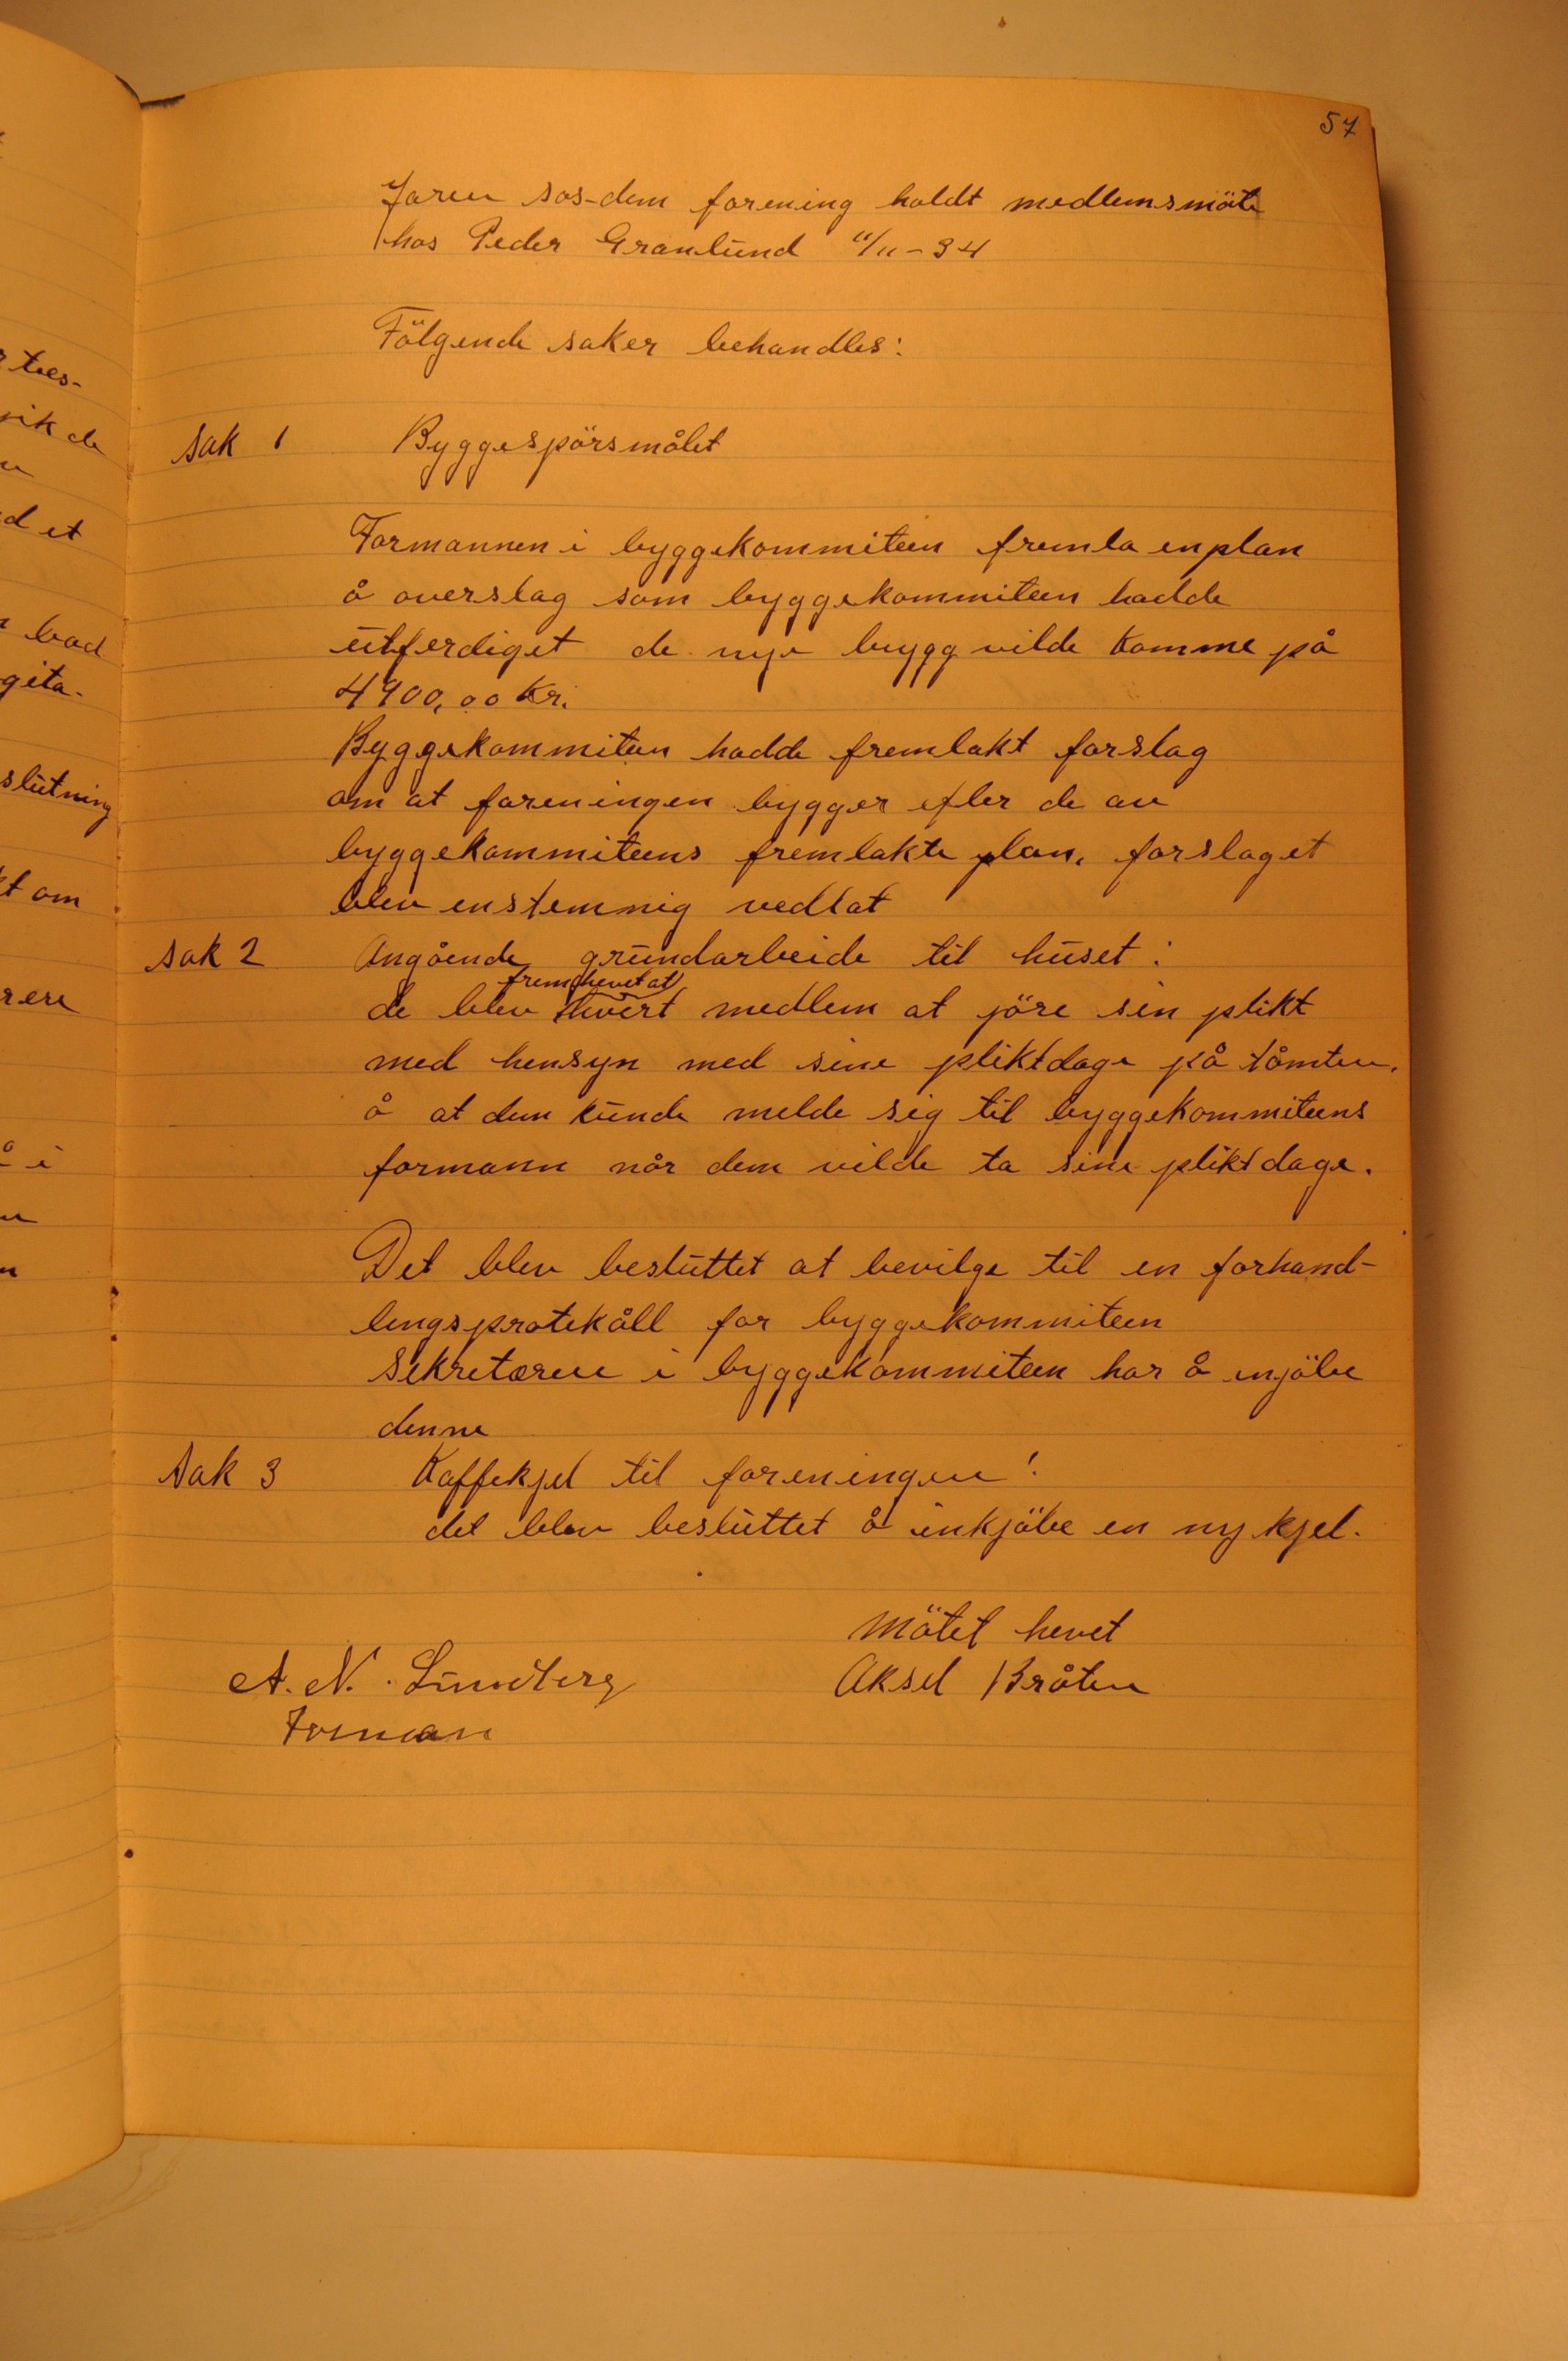 57
Jaren sos-dem forening holdt medlemsmöte
hos Peder Granlund 11/11-34
Fölgende saker behandles:
sak 1 Byggespörsmålet
Formannen i byggekommiteen fremla en plan
å overslag som byggekommiteen hadde
utferdiget de nye bygg vilde komme på
4900,00 kr.
Byggekommiteen hadde fremlakt forslag
om at foreningen bygger efter de av
byggekommiteens fremlakte plan. forslaget
blev enstemnig vedtat
sak 2 Angående grundarbeide til huset:
fremhevet at
de blev hvert medlem at jöre sin plikt
med hensyn med sine pliktdage på tåmten.
å at dem kunde melde sig til byggekommiteens
formann når dem vilde ta sine pliktdage.
Det blev besluttet at bevilge til en forhand-
lingsprotekåll for byggekommiteen
Sekretæren i byggekommiteen har å injöbe
denne
Sak 3 Kaffekjel til foreningen!
det blev besluttet å inkjöbe en ny kjel.
Mötet hevet
A. N. Lundberg Aksel Bråten
Forman
rtees-
vik de
d et
bad
gita-
slutning
kt om
rere
å i